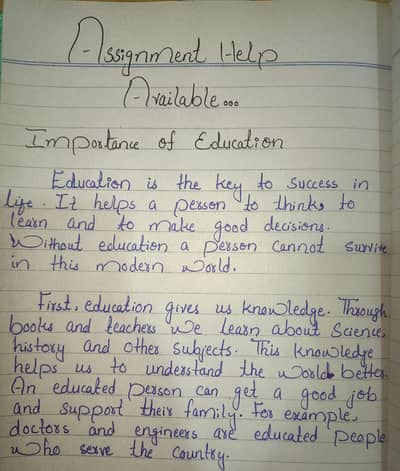 Assignment Help
Available...
Importance of Education
Education is the key to success in
life. It helps a person to thinks to
learn and to make good decisions.
Without education a person cannot survive
in this modern world.
First, education gives us knowledge. Through
books and teachers we learn about Science,
history and other subjects. This knowledge
helps us to understand the world better.
An educated person can get a good job
and support their family. For example,
doctors and engineers are educated people
who serve the country.